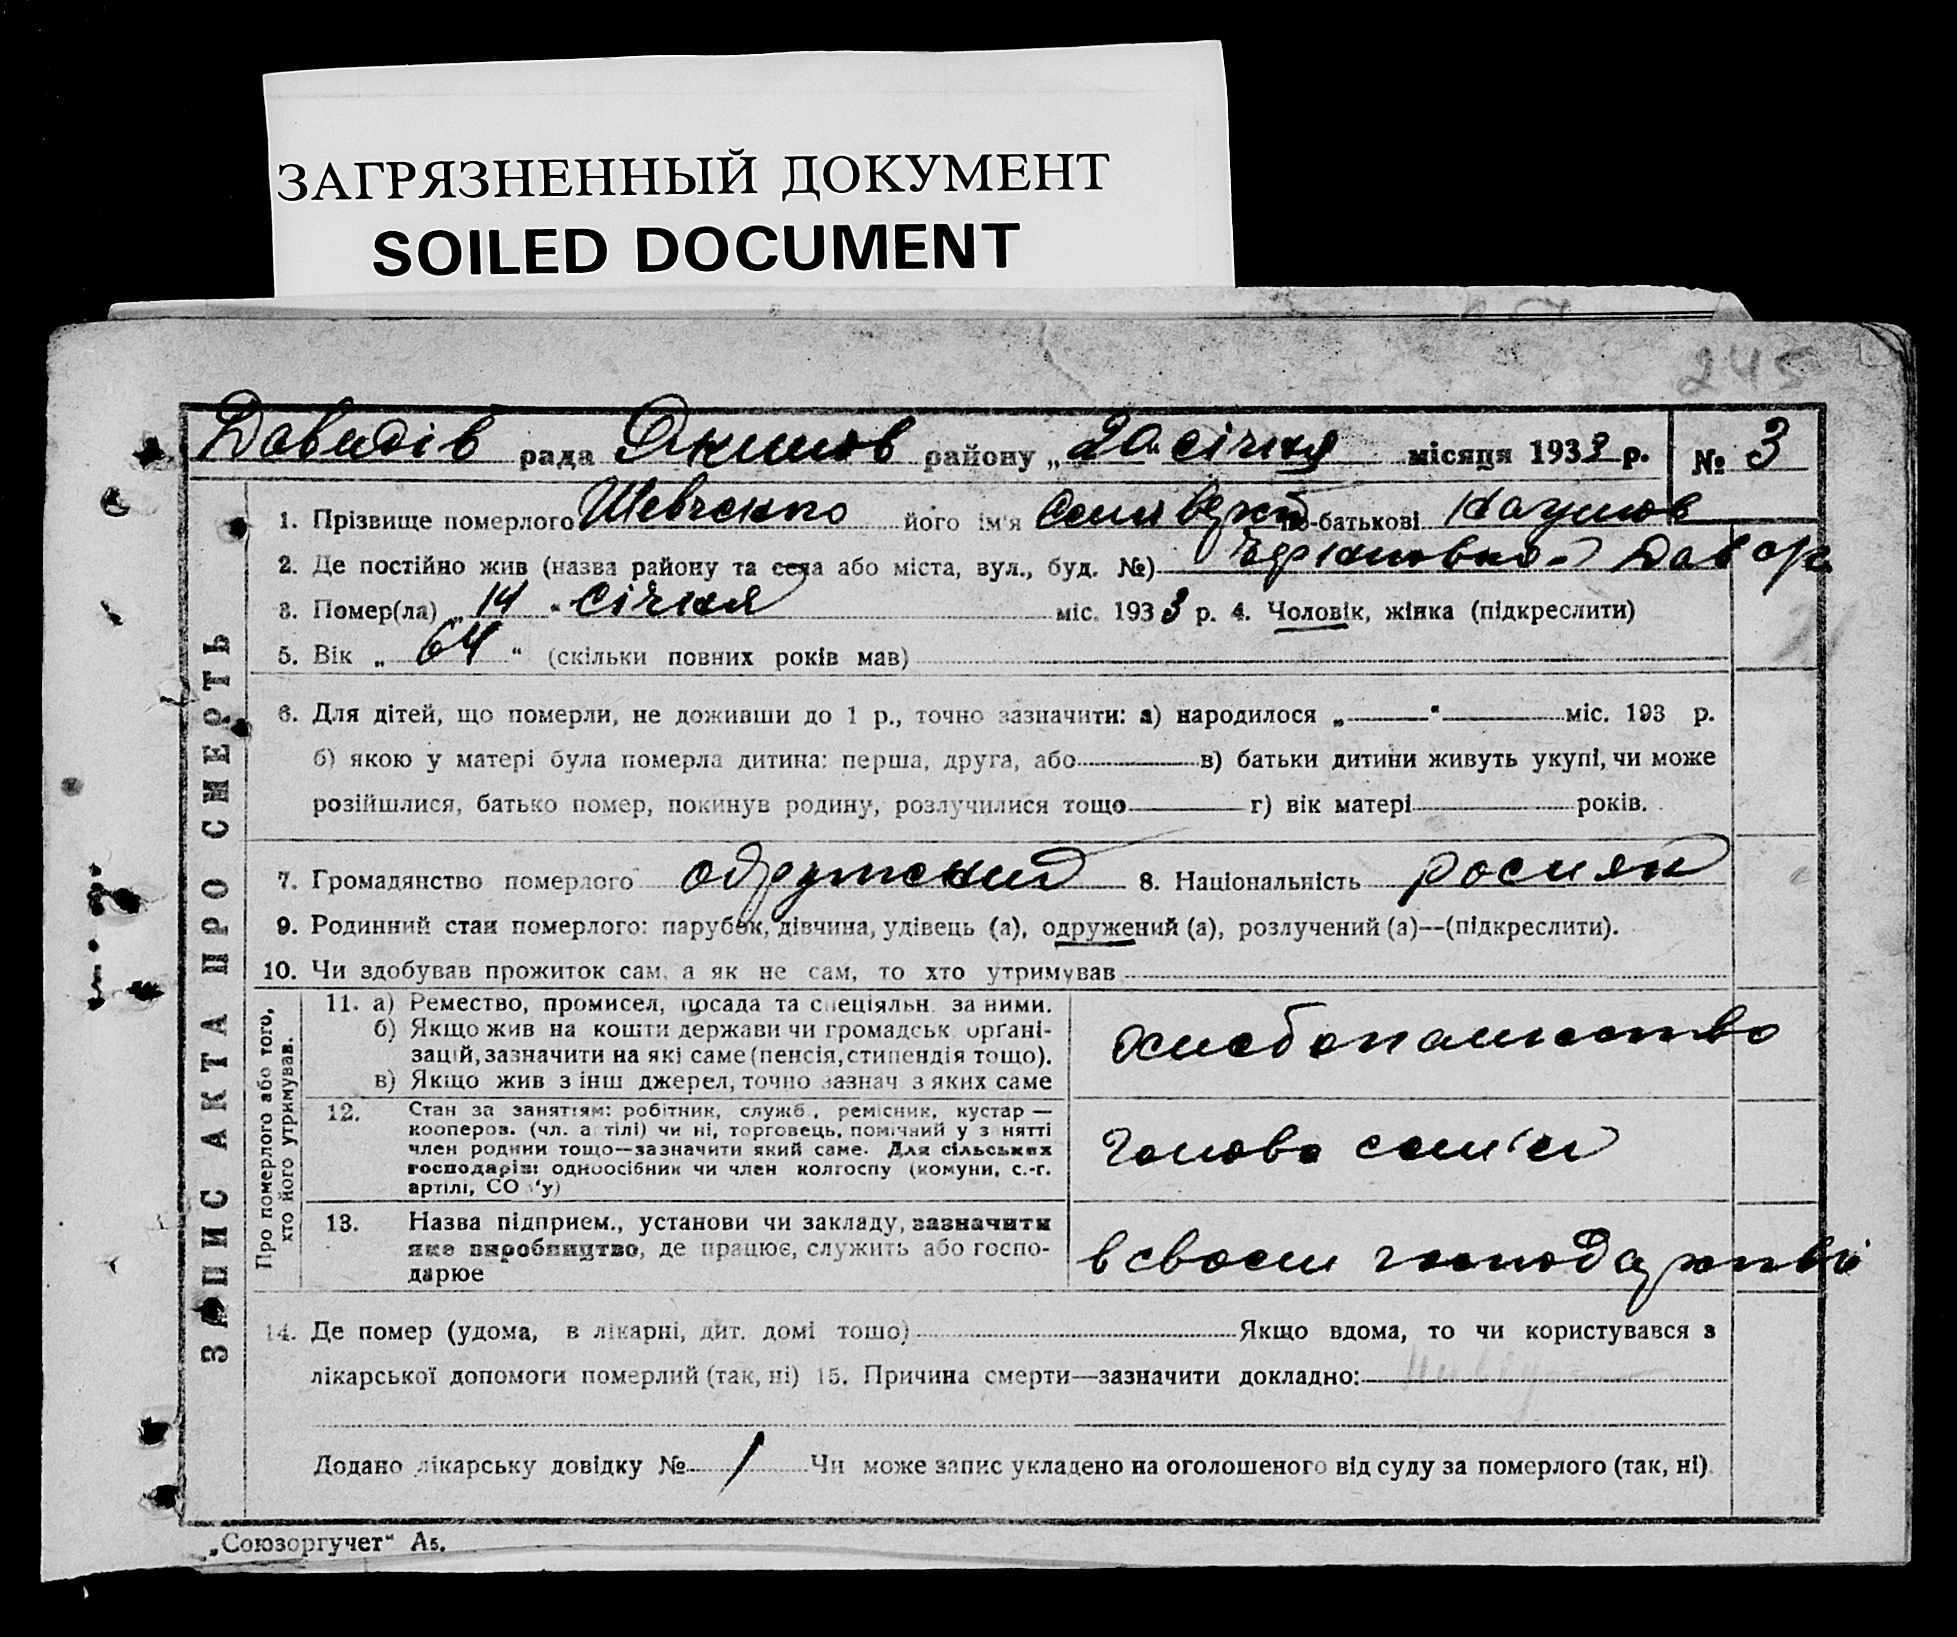 ЗАГРЯЗНЕННЫЙ ДОКУМЕНТ
SOILED DOCUMENT
245
Давидів рада Якимов району „20“ січня місяця 1933 р. № 3
ЗАПИС АКТА ПРО СМЕРТЬ
1. Прізвище померлого Шевченко його ім'я по-батькові Наумов
2. Де постійно жив (назва району та села або міста, вул., буд. №) Дав с/р
3. Помер(ла) „14“ січня міс. 1933 р. 4. Чоловік, жінка (підкреслити)
5. Вік „64“ (скільки повних років мав)
6. Для дітей, що померли, не доживши до 1 р., точно зазначити: а) народилося „ “ міс. 193 р.
б) якою у матері була померла дитина: перша, друга, або в) батьки дитини живуть укупі, чи може
розійшлися, батько помер, покинув родину, розлучилися тощо г) вік матері років.
7. Громадянство померлого 8. Національність росиян
9. Родинний стан померлого: парубок, дівчина, удівець (а), одружений (а), розлучений (а)—(підкреслити).
10. Чи здобував прожиток сам, а як не сам, то хто утримував
Про померлого або того,
хто його утримував.
11. а) Ремество, промисел, посада та спеціяльн. за ними.
б) Якщо жив на кошти держави чи громадськ. орґані-
зацій, зазначити на які саме (пенсія, стипендія тощо).
в) Якщо жив з інш джерел, точно зазнач з яких саме
хлєбопашество
12. Стан за заняттям: робітник, служб., ремісник, кустар —
кооперов. (чл. артілі) чи ні, торговець, помічний у занятті
член родини тощо—зазначити який саме. Для сільських
господарів: одноосібник чи член колгоспу (комуни, с.-г.
артілі, СО з'у)
голова сем'ї
13. Назва підприєм., установи чи закладу, зазначити
яке виробництво, де працює, служить або госпо-
дарює
в своєм господарстві
14. Де помер (удома, в лікарні, дит. домі тощо) Якщо вдома, то чи користувався з
лікарської допомоги померлий (так, ні) 15. Причина смерти—зазначити докладно:
Додано лікарську довідку № Чи може запис укладено на оголошеного від суду за померлого (так, ні)
„Союзоргучет“ А5.